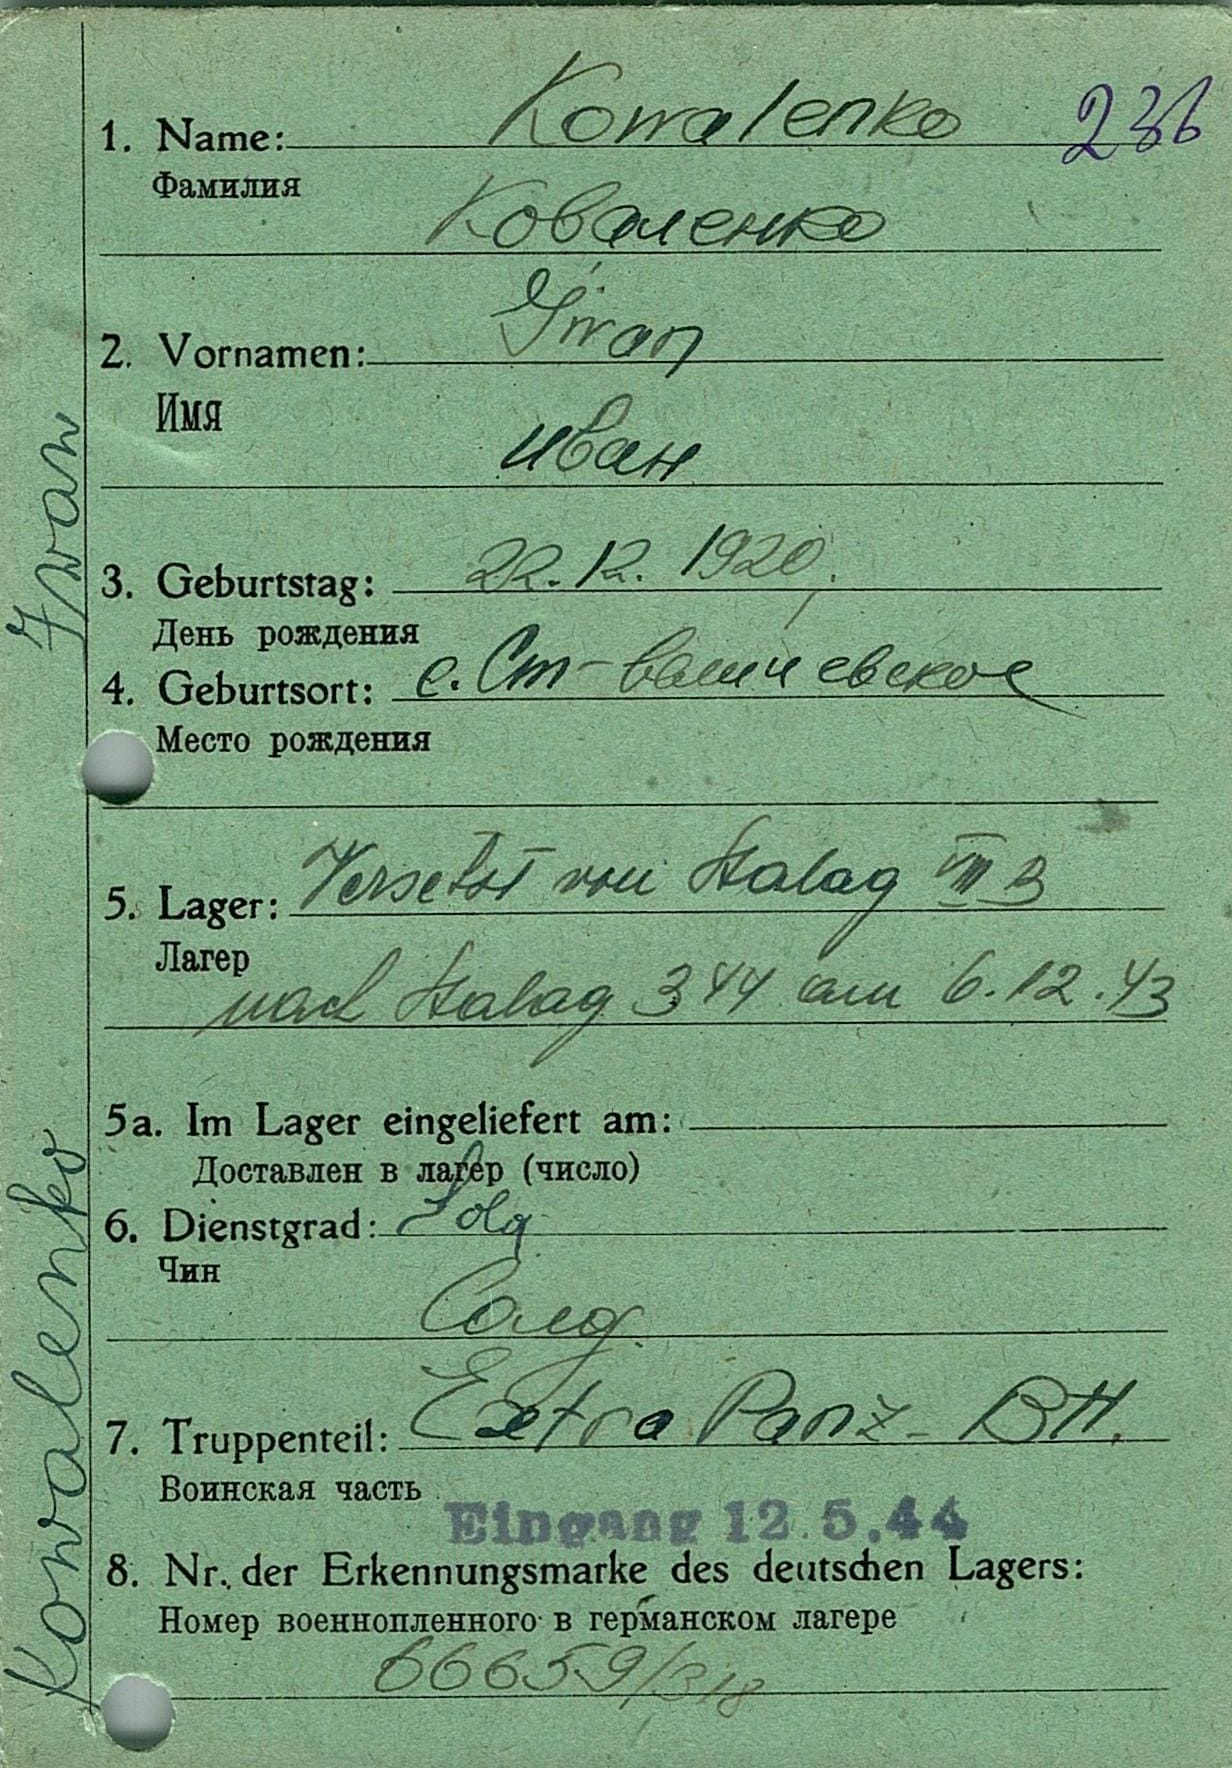 Kowalenko 236
1. Name:
Фамилия
Коваленко
Iwan
2. Vornamen:
Имя
иван
3. Geburtstag: 22.12.1920.
День рождения
4. Geburtsort: с. Ст-
Место рождения
5. Lager: Versetzt von Stalag VIII B
Лагер
nach Stalag 344 am 6.12.43
5a. Im Lager eingeliefert am:
Доставлен в лагер (число)
6. Dienstgrad: Sold
Чин
Солд.
7. Truppenteil: Extra Panz-
Воинская часть
Eingang 12.5.44
8. Nr. der Erkennungsmarke des deutschen Lagers:
Номер военнопленного в германском лагере
66659/318
Kowalenko Iwan